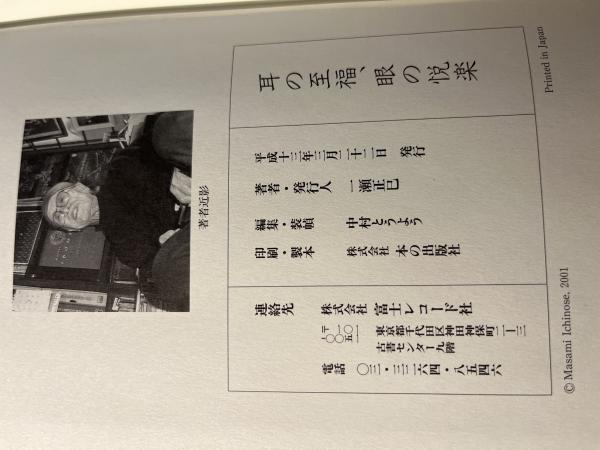 耳の至福、眼の悦楽
平成十三年三月二十二日 発行
著者・発行人 一瀬正巳
編集・装幀 中村とうよう
印刷・製本 株式会社 本の出版社
連絡先 株式会社 富士レコード社
〒一〇一-〇〇五一
東京都千代田区神田神保町二ー三
古書センター九階
電話 〇三・三二六四・八五四六
著者近影
© Masami Ichinose, 2001
Printed in Japan